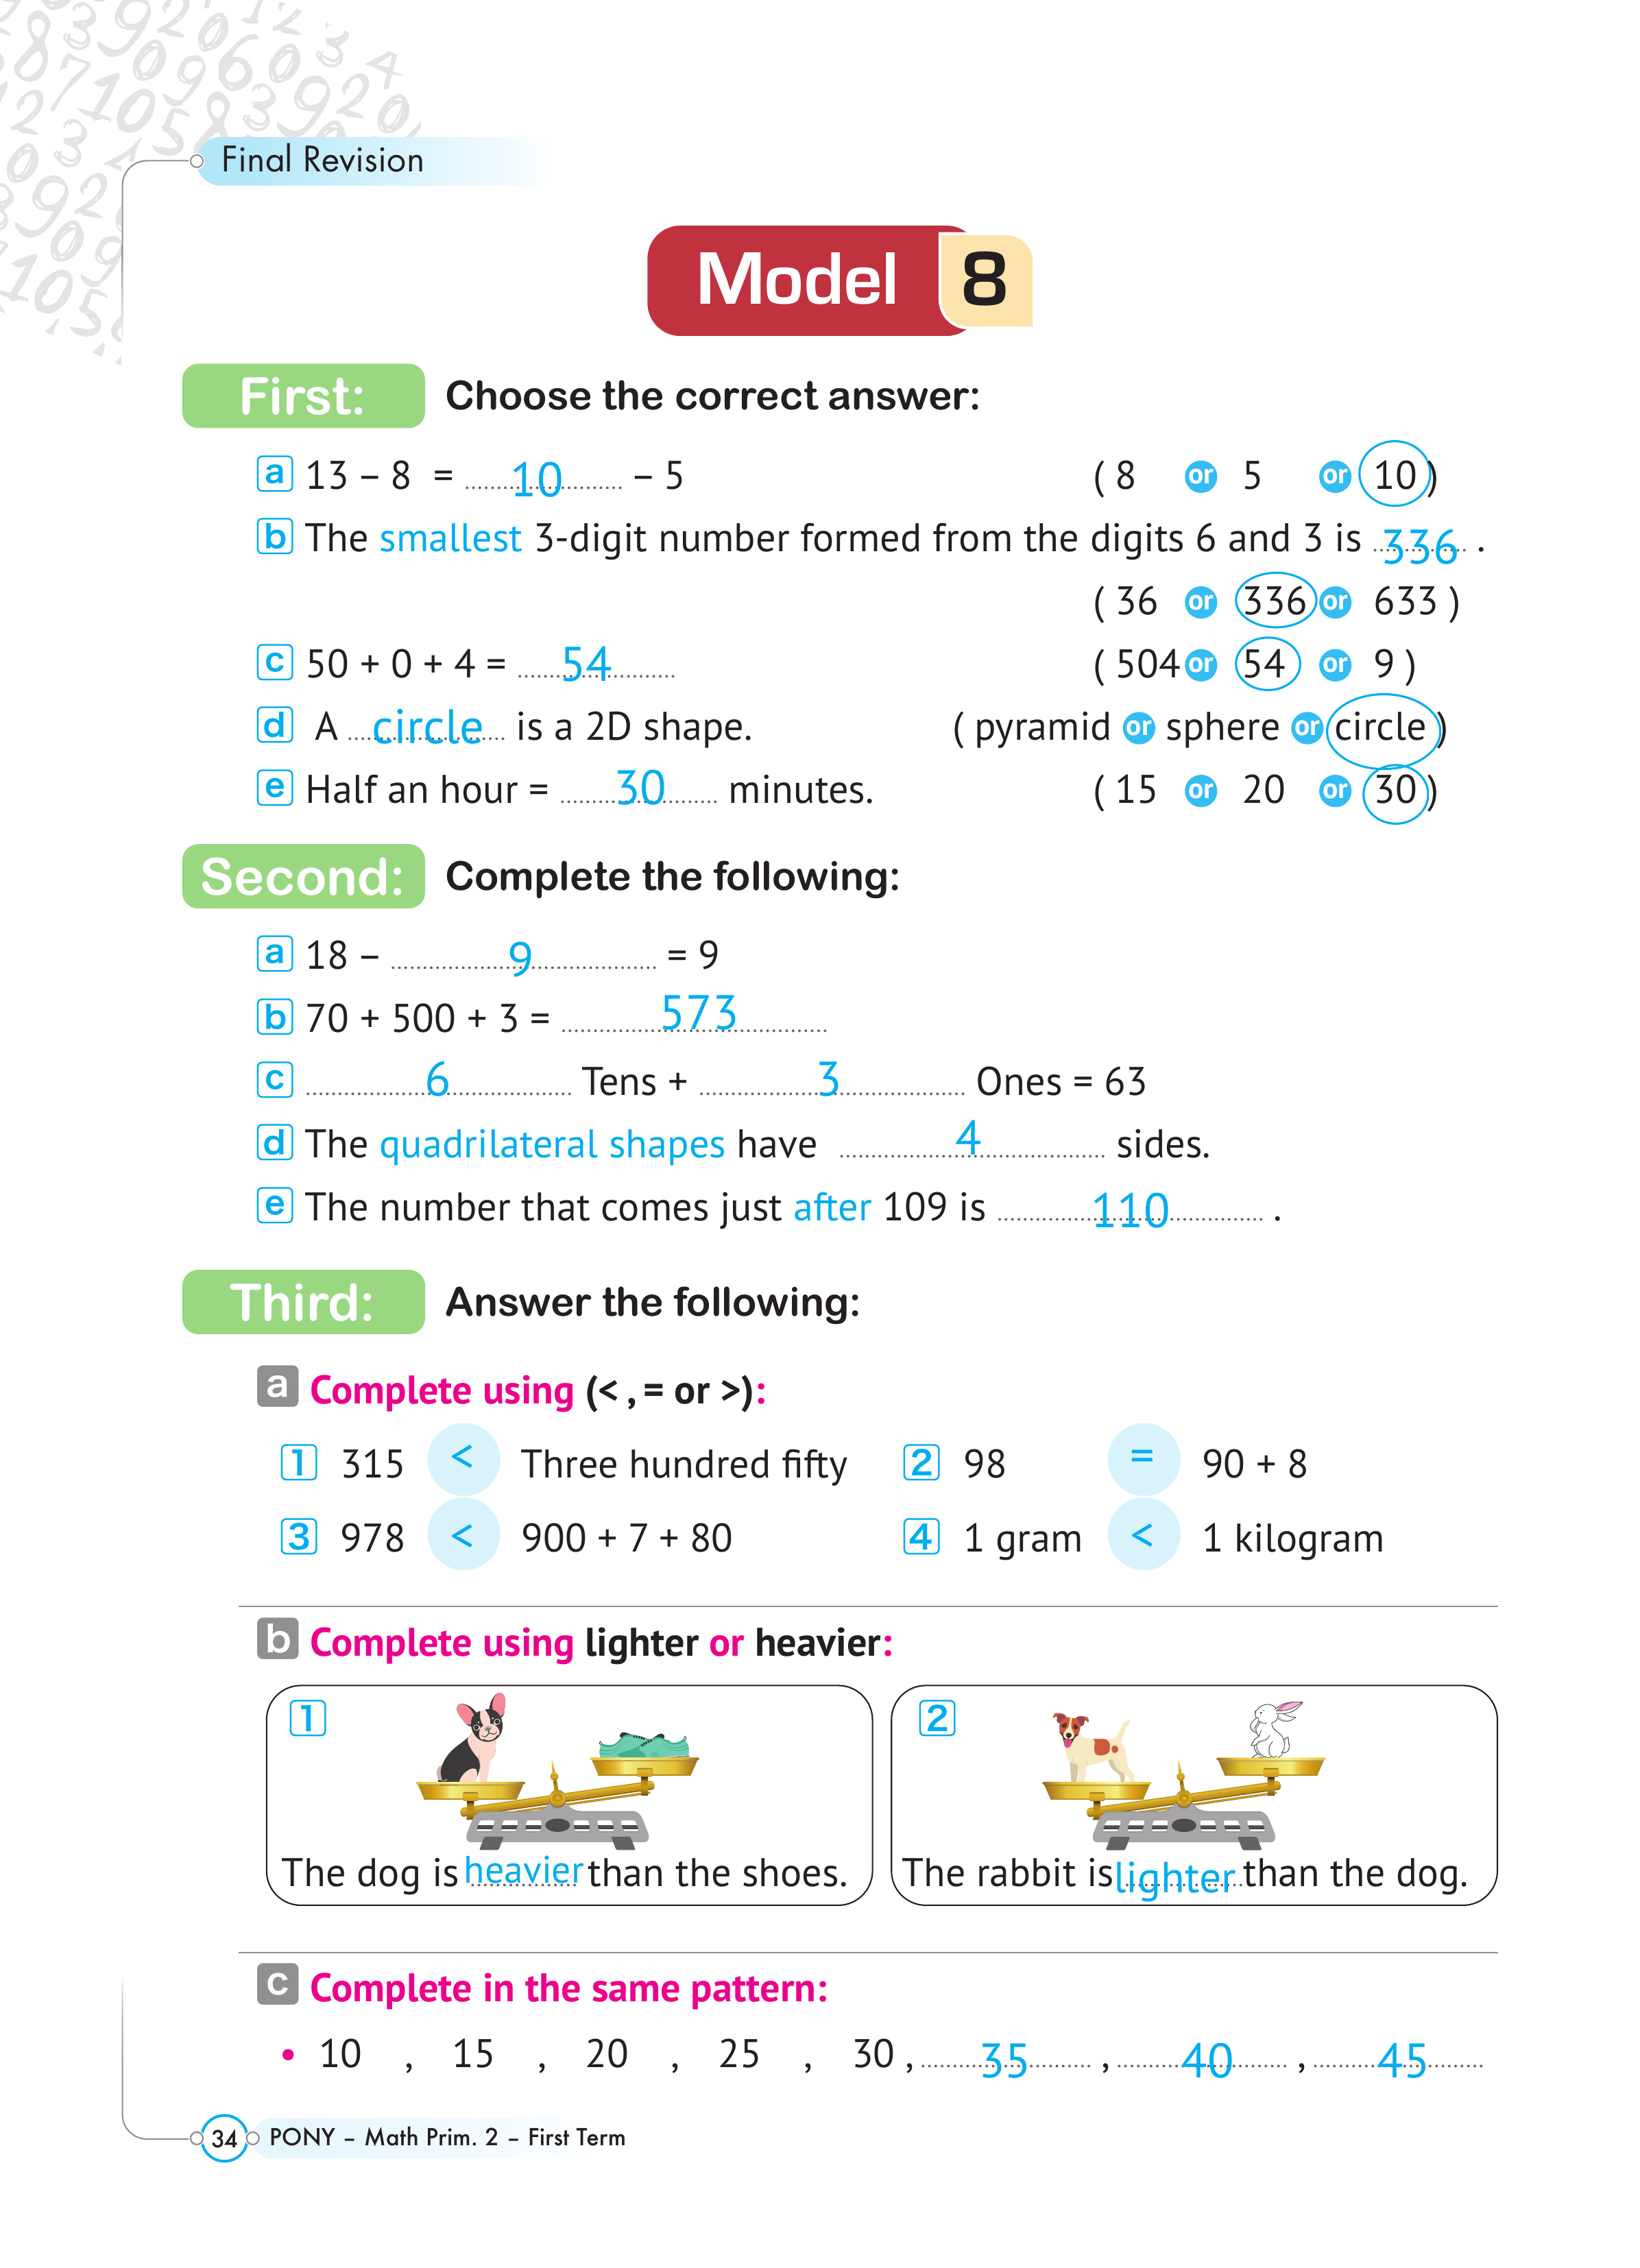 Final Revision
Model 8
First: Choose the correct answer:
a 13 – 8 = 10 – 5 ( 8 or 5 or 10 )
b The smallest 3-digit number formed from the digits 6 and 3 is 336 .
( 36 or 336 or 633 )
c 50 + 0 + 4 = 54 ( 504 or 54 or 9 )
d A circle is a 2D shape. ( pyramid or sphere or circle )
e Half an hour = 30 minutes. ( 15 or 20 or 30 )
Second: Complete the following:
a 18 – 9 = 9
b 70 + 500 + 3 = 573
c 6 Tens + 3 Ones = 63
d The quadrilateral shapes have 4 sides.
e The number that comes just after 109 is 110 .
Third: Answer the following:
a Complete using (< , = or >):
1 315 < Three hundred fifty 2 98 = 90 + 8
3 978 < 900 + 7 + 80 4 1 gram < 1 kilogram
b Complete using lighter or heavier:
1 2
The dog is heavier than the shoes. The rabbit is lighter than the dog.
c Complete in the same pattern:
• 10 , 15 , 20 , 25 , 30 , 35 , 40 , 45
34 PONY – Math Prim. 2 – First Term